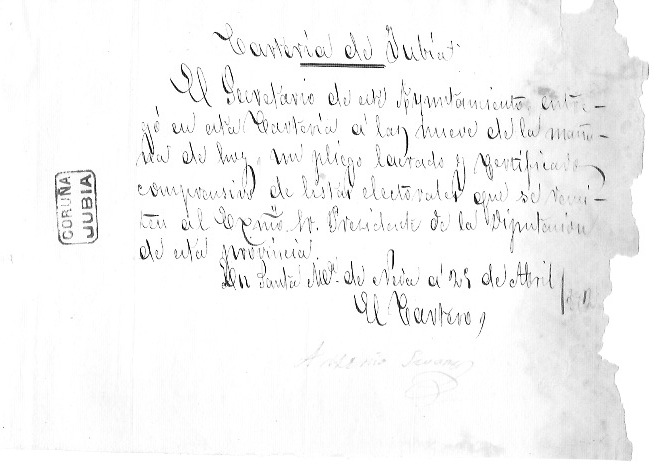 Cartería de Jubia
El Secretario de este Ayuntamiento entre-
gó en esta Cartería á las nueve de la maña-
na de hoy, un pliego lacrado y certificado
comprensivo de listas electorales que se remi-
ten al Exmo. Sr. Presidente de la Diputación
de esta provincia.
En Santa Ma. de Neda á 25 de Abril
El Cartero,
Antonio
CORUÑA
JUBIA